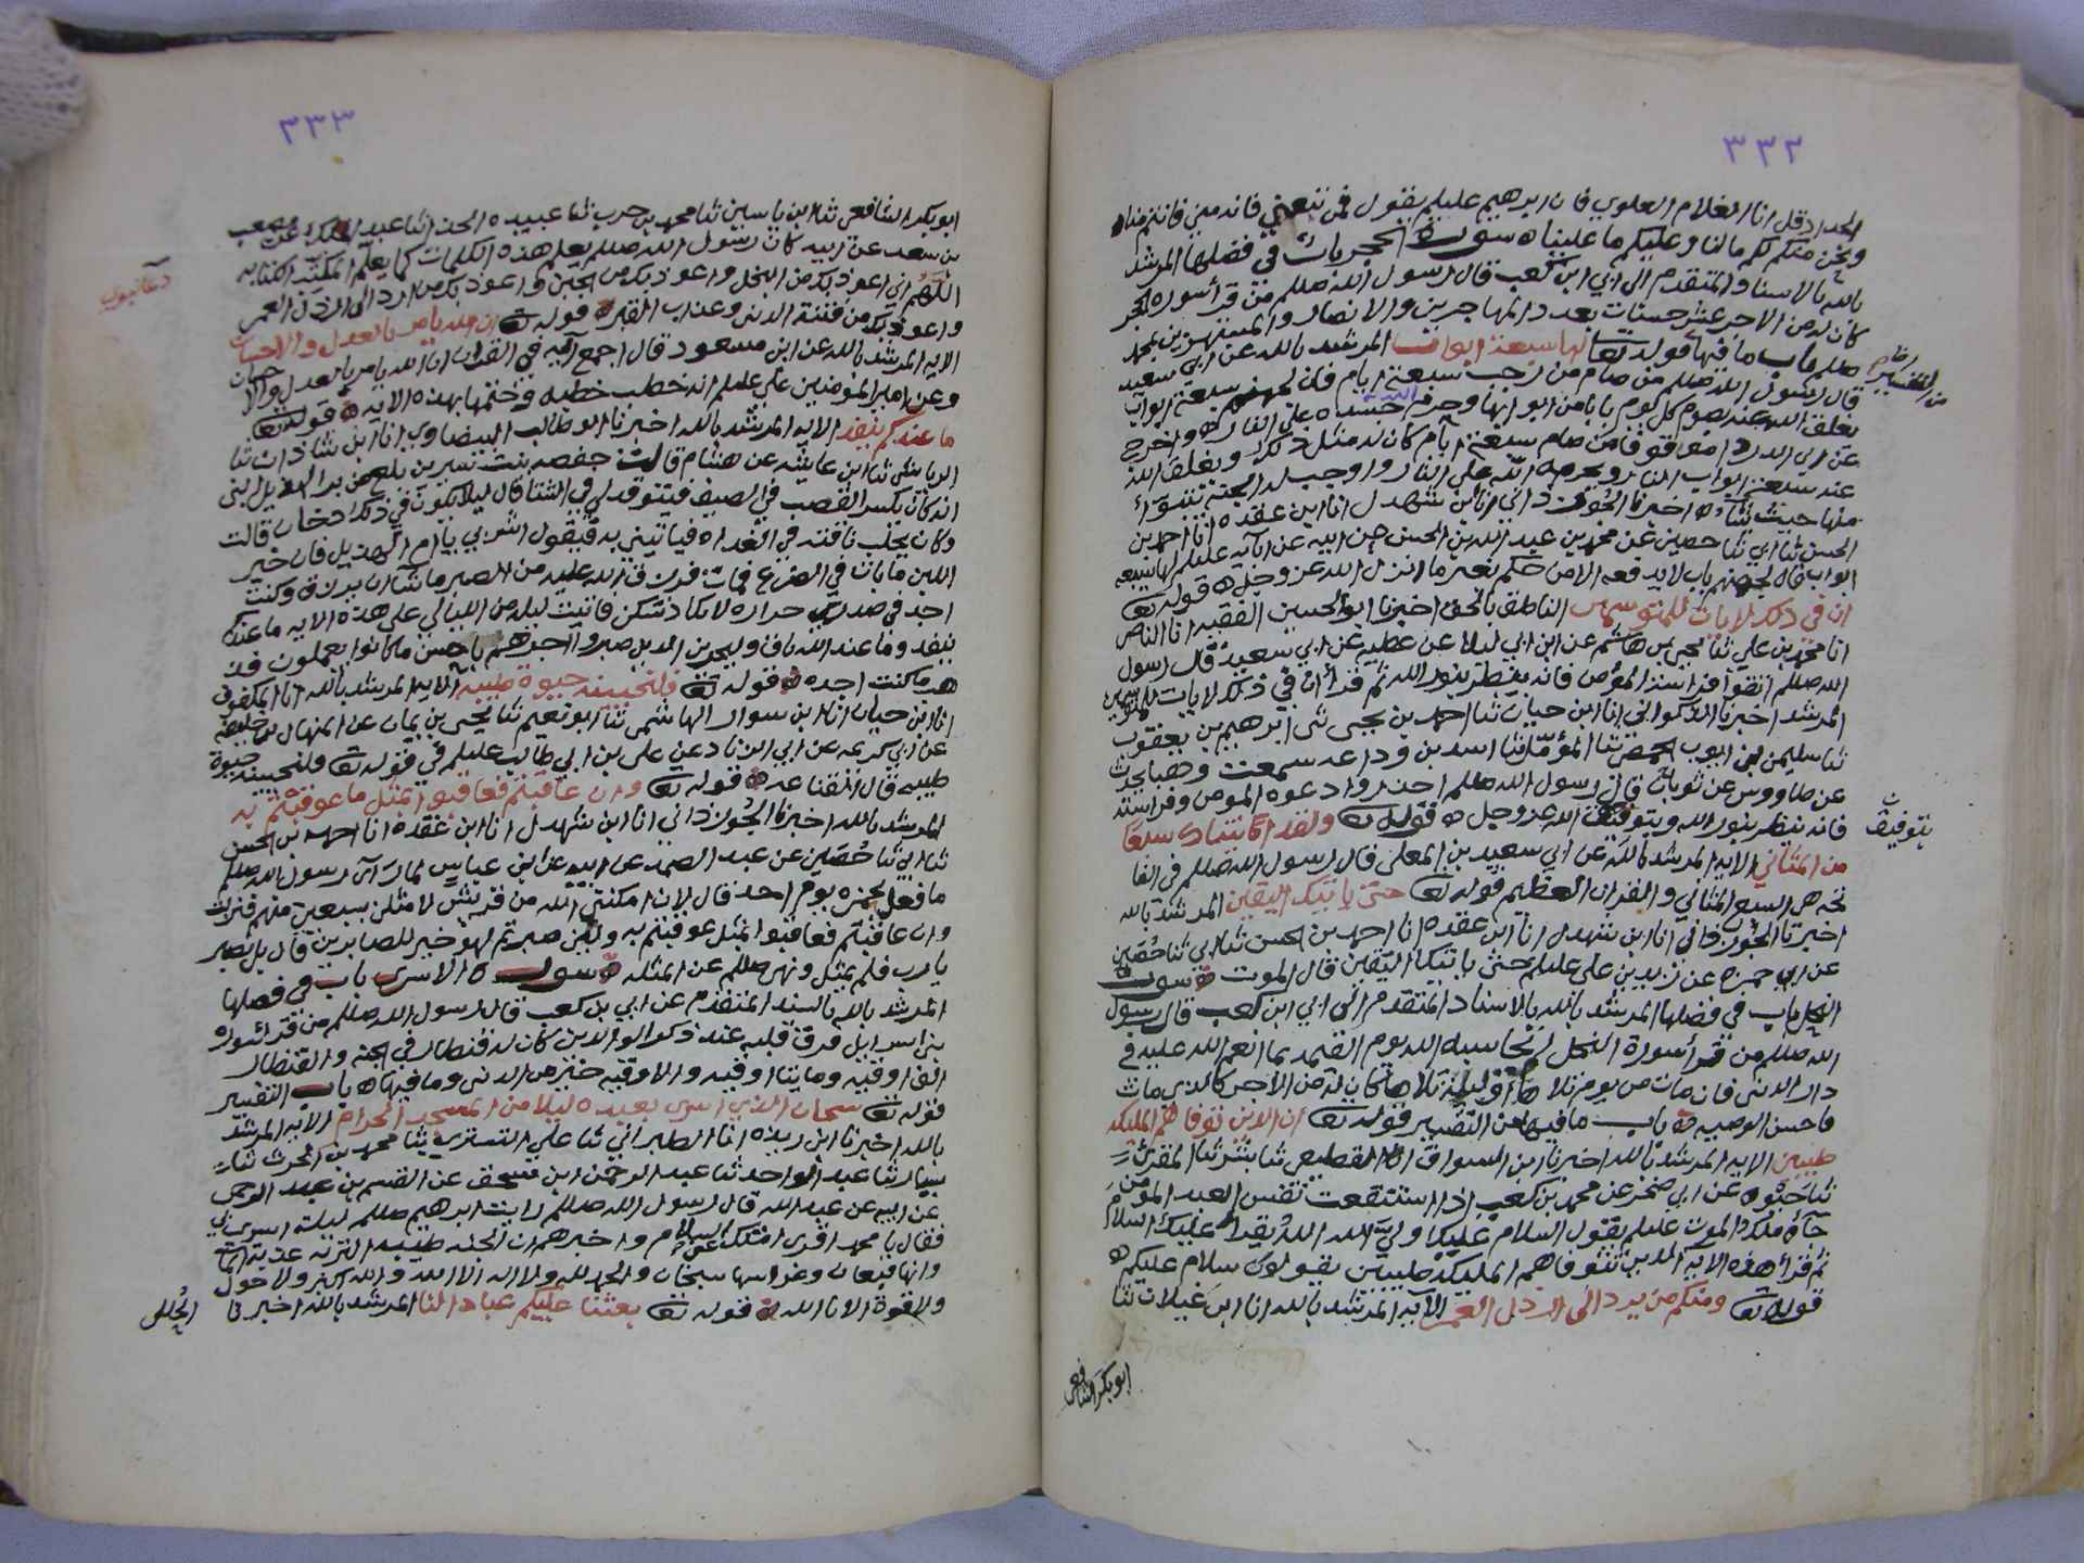 ٣٣٢
الحداد قل انا الغلام العلوي فان ابرهيم عليلم يقول فمن تبعني فانه مني فانتم منا
ونحن منكم لكم مالنا وعليكم ما علينا ه سورة الحجر باب في فضلها المرشد
بالله بالاسناد المتقدم الى ابي ابن كعب قال رسول الله صللم من قرأ سورة الحجر
كان له من الاجر عشر حسنات بعدد المهاجرين والانصار والمستهزين بمحمد
صللم باب ما فيها قوله تعا لها سبعة ابواب المرشد بالله عن ابي سعيد
من التفسير
قال رسول الله صللم من صام من رجب سبعة ايام فان لجهنم سبعة ابواب
يغلق الله عنه بصوم كل يوم بابا من ابوابها وحرم الله جسده على النار ه واخرج
عن ابي الدرداء موقوفا من صام سبعة ايام كان له مثل ذلك ويغلق الله
عنه سبعة ابواب النار ويحرمه الله على النار واوجب له الجنة يتبوأ
منها حيث شاء ه اخبرنا الجوزذاني انا ابن شهدل انا ابن عقده انا احمد بن
الحسن ثنا ابي ثنا حصين عن محمد بن عبد الله بن الحسن عن ابيه عن ابائه عليلم لها سبعة
ابواب قال لجهنم باب لا يدخله الا من حكم بغير ما انزل الله عز وجل ه قوله تعا
ان في ذلك لايات للمتوسمين الناطق بالحق اخبرنا ابو الحسين الفقيه انا الناصر
انا محمد بن علي ثنا يحيى بن هاشم عن ابن ابي ليلا عن عطيه عن ابي سعيد قال رسول
الله صللم اتقوا فراسة المؤمن فانه ينظر بنور الله ثم قرأ ان في ذلك لايات للمتوسمين
المرشد اخبرنا الذكواني انا ابن حيان ثنا احمد بن يحيى ثنى ابرهيم بن يعقوب
ثنا سليمن بن ايوب الحمصي ثنا المؤمل ثنا اسد بن وداعه سمعت وهبا يحدث
عن طاووس عن ثوبان قال رسول الله صللم احذروا دعوه المومن وفراسته
فانه ينظر بنور الله ويتوفيق الله عز وجل ه قوله تعا ولقد اتيناك سبعا
بتوفيق
من المثاني الايه المرشد بالله عن ابي سعيد بن المعلى قال رسول الله صللم في الفا
تحه هي السبع المثاني والقران العظيم قوله تعا حتى ياتيك اليقين المرشد بالله
اخبرنا الجوزذاني انا ابن شهدل انا ابن عقده انا احمد بن الحسن ثنا ابي ثنا حصين
عن ابي حمزه عن زيد بن علي عليلم حتى ياتيك اليقين قال الموت ه سورة
النحل باب في فضلها المرشد بالله بالاسناد المتقدم الى ابي ابن كعب قال رسول
الله صللم من قرأ سورة النحل لم يحاسبه الله يوم القيمه بما انعم الله عليه في
دار الدنى فان مات من يوم تلاها او ليلة تلاها كان له من الاجر كالذي مات
فاحسن الوصيه ه باب ما فيها من التفسير قوله تعا ان الذين تتوفاهم المليكه
طيبين الايه المرشد بالله اخبرنا ابن السواق انا القطيعي ثنا بشر ثنا المقرئ
ثنا حيوه عن ابي صخر عن محمد بن كعب اذا استنقعت نفس العبد المؤمن
جآه ملك الموت عليلم يقول السلام عليك ولي الله الله يقرأ عليك السلام
ثم قرأ هذه الآيه الذين تتوفاهم المليكه طيبين يقولون سلام عليكم ه
قوله تعا ومنكم من يرد الى ارذل العمر الآيه المرشد بالله انا ابن غيلان ثنا
ابو بكر الشافعي
٣٣٣
ابو بكر الشافعي ثنا ابن ياسين ثنا محمد بن حرب ثنا عبيده الحذا ثنا عبد الملك عن مصعب
بن سعد عن ابيه كان رسول الله صللم يعلم هذه الكلمات كما يعلم المكتب الكتابه
اللهم اني اعوذ بك من البخل واعوذ بك من الجبن واعوذ بك من ارد الى ارذل العمر
واعوذ بك من فتنة الدنى وعذاب القبر ه قوله تعا ان الله يامر بالعدل والاحسان
الايه المرشد بالله عن ابن مسعود قال اجمع آيه في القران ان الله يامر بالعدل والا حسان
وعن امير المؤمنين علي عليلم انه خطب خطبه وختمها بهذه الايه ه قوله تعا
ما عندكم ينفذ الايه المرشد بالله اخبرنا ابو طالب البيضاوي انا ابن شاذان ثنا
الرياشي ثنا ابن عايشه عن هشام قالت حفصه بنت سيرين بلغ من بر الهذيل ابني
انه كان يكسر القصب في الصيف فيتوقد لي في الشتا قال ليلا يكون في ذلك دخان قالت
وكان يحلب ناقته في الغداه فياتيني به فيقول اشربي يا ام الهذيل فان خير
اللبن ما بات في الضرع فمات فرزق الله عليه من الصبر ما شا ان يرزق وكنت
اجد في صدري حراره لا يكاد تسكن فاتيت ليله من الليالي على هذه الايه ما عندكم
ينفد وما عند الله باق وليجزين الذين صبروا اجرهم باحسن ما كانوا يعملون فذ
هب ما كنت اجده ه قوله تعا فلنحيينه حيوة طيبه الايه المرشد بالله انا المكفوف
انا ابن حيان انا ابن سوار الهاشمي ثنا ابو نعيم ثنا يحيى بن يمان عن المنهال بن خليفه
عن ابي كريمه عن ابي الزناد عن علي بن ابي طالب عليلم في قوله تعا فلنحيينه حيوة
طيبه قال القناعه ه قوله تعا وان عاقبتم فعاقبوا بمثل ما عوقبتم به
المرشد بالله اخبرنا الجوزذاني انا ابن شهدل انا ابن عقده انا احمد بن الحسن
ثنا ابي ثنا حصين عن عبد الصمد عن ابيه عن ابن عباس لما رآى رسول الله صللم
ما فعل بحمزه يوم احد قال لان امكنني الله من قريش لامثلن بسبعين منهم فنزلت
وان عاقبتم فعاقبوا بمثل عوقبتم به ولين صبرتم لهو خير للصابرين قال بل نصبر
يارب فلم يمثل ونهى صللم عن المثله ه سورة الاسرى باب في فضلها
المرشد بالله بالسند المتقدم عن ابي بن كعب قال رسول الله صللم من قرأ سوره
بنى اسرايل فرق قلبه عند ذكر الوالدين كان له قنطار في الجنه والقنطار
الف اوقيه ومايتا اوقيه والاوقيه خير من الدنى وما فيها ه باب التفسير
قوله تعا سبحان الذي اسرى بعبده ليلا من المسجد الحرام الايه المرشد
بالله اخبرنا ابن ريذه انا الطبراني ثنا علي التستري ثنا محمد بن الحرث ثنا
سيار ثنا عبد الواحد ثنا عبد الرحمن ابن اسحق عن القسم بن عبد الرحمن
عن ابيه عن عبد الله قال رسول الله صللم رايت ابرهيم صللم ليلة اسري بي
فقال يا محمد اقرى امتك عني السلام واخبرهم ان الجنه طيبه التربه عذبة الما
وانها قيعان وغراسها سبحان والحمد لله ولا اله الا الله والله اكبر ولا حول
ولا قوة الا بالله ه قوله تعا بعثنا عليكم عبادا لنا المرشد بالله اخبرنا